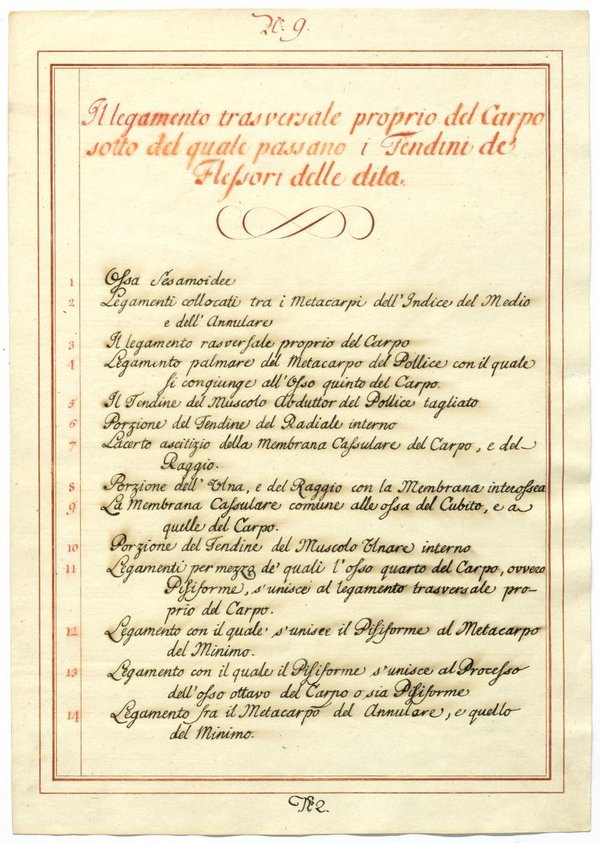 N. 9.
Il legamento trasversale proprio del Carpo
sotto del quale passano i Tendini de'
Flessori delle dita.
1 Ossa Sesamoidee
2 Legamenti collocati tra i Metacarpi dell'Indice del Medio
e dell'Annulare
3 Il legamento rasversale proprio del Carpo
4 Legamento palmare del Metacarpo del Pollice con il quale
si congiunge all'Osso quinto del Carpo.
5 Il Tendine del Muscolo Abduttor del Pollice tagliato
6 Porzione del Tendine del Radiale interno
7 Lacerto ascitizio della Membrana Cassulare del Carpo, e del
Raggio.
8 Porzione dell'Ulna, e del Raggio con la Membrana interossea
9 La Membrana Cassulare comune alle ossa del Cubito, e a
quelle del Carpo.
10 Porzione del Tendine del Muscolo Ulnare interno
11 Legamenti per mezzo de' quali l'osso quarto del Carpo, ovvero
Pisiforme, s'unisce al legamento trasversale pro-
prio del Carpo.
12 Legamento con il quale s'unisce il Pisiforme al Metacarpo
del Minimo.
13 Legamento con il quale il Pisiforme s'unisce al Processo
dell'osso ottavo del Carpo o sia Pisiforme
14 Legamento fra il Metacarpo del Annulare, e quello
del Minimo.